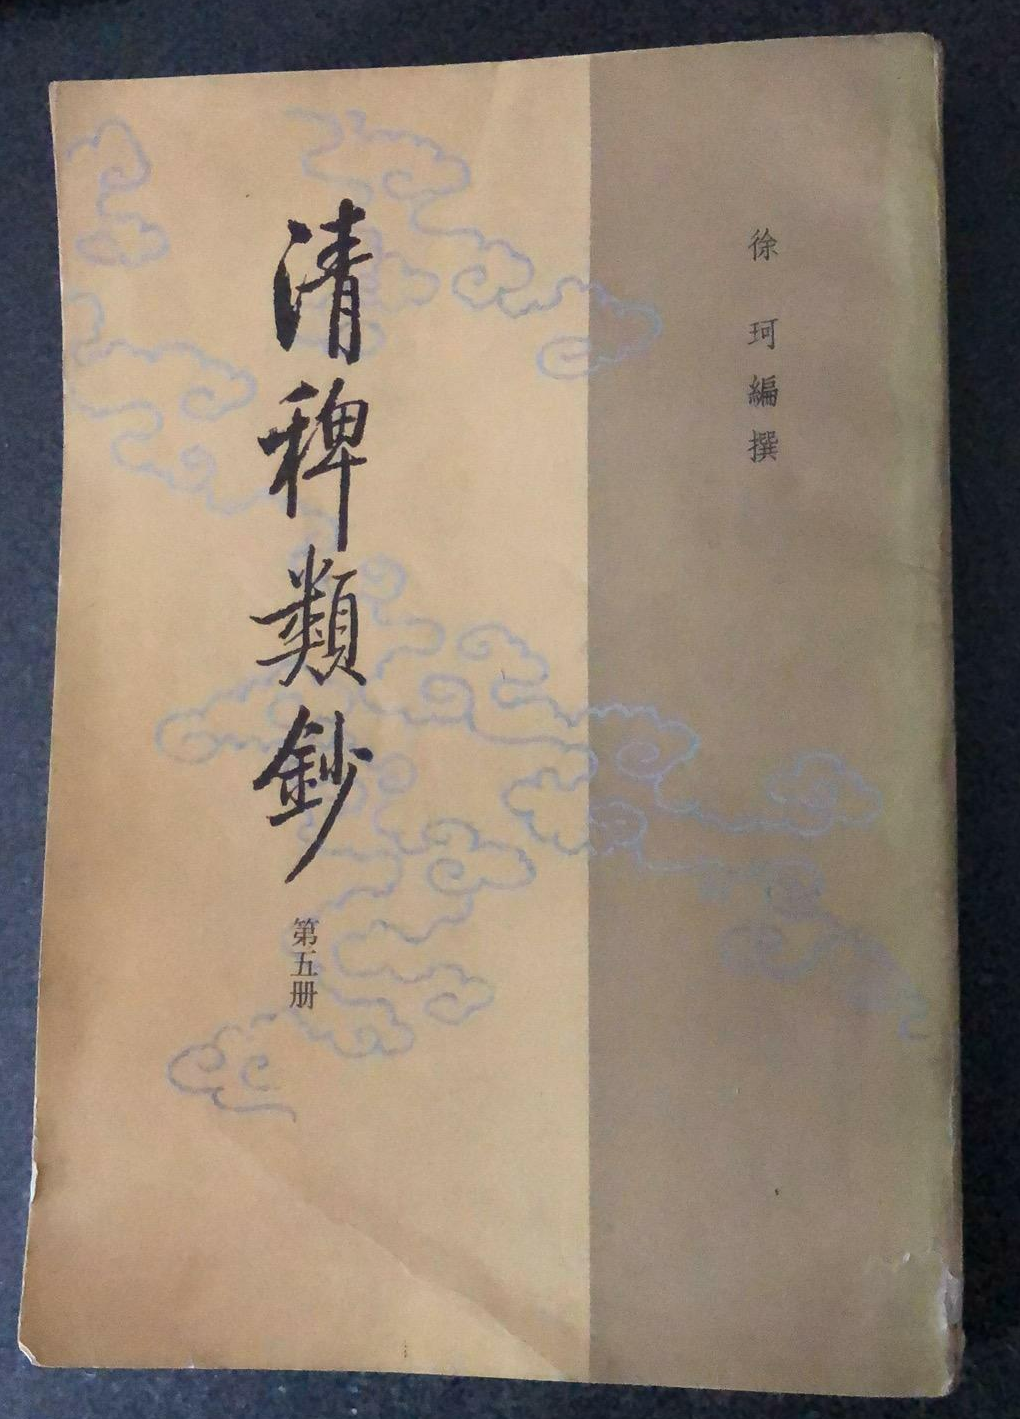 徐珂編撰
清稗類鈔
第五册